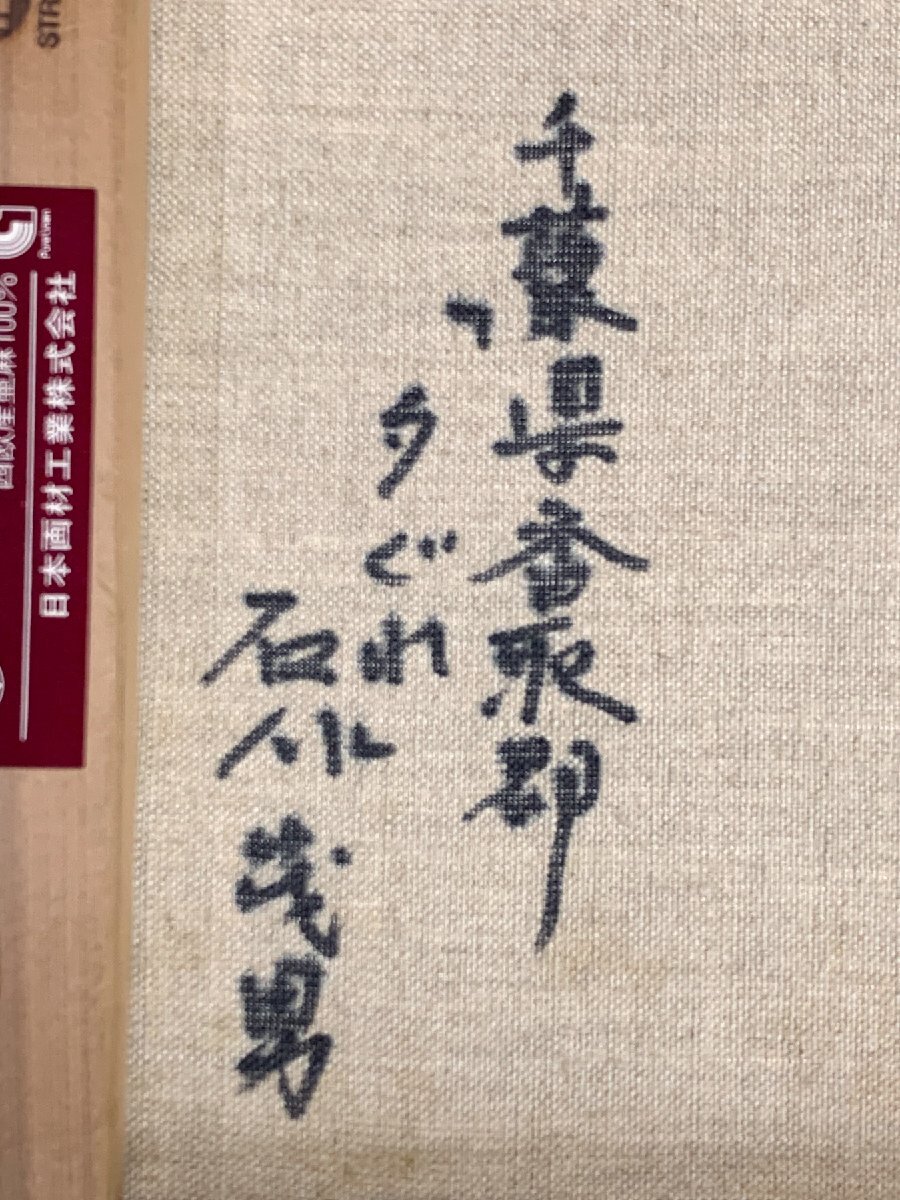 千葉県香取郡
「夕ぐれ」
石川茂男
STR
Pure Linen
日本画材工業株式会社
西欧産亜麻100%